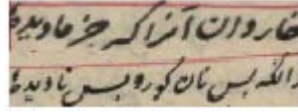 خار دان آنرا که خرما دیده
زانکه بس نان کور و بس نادیده